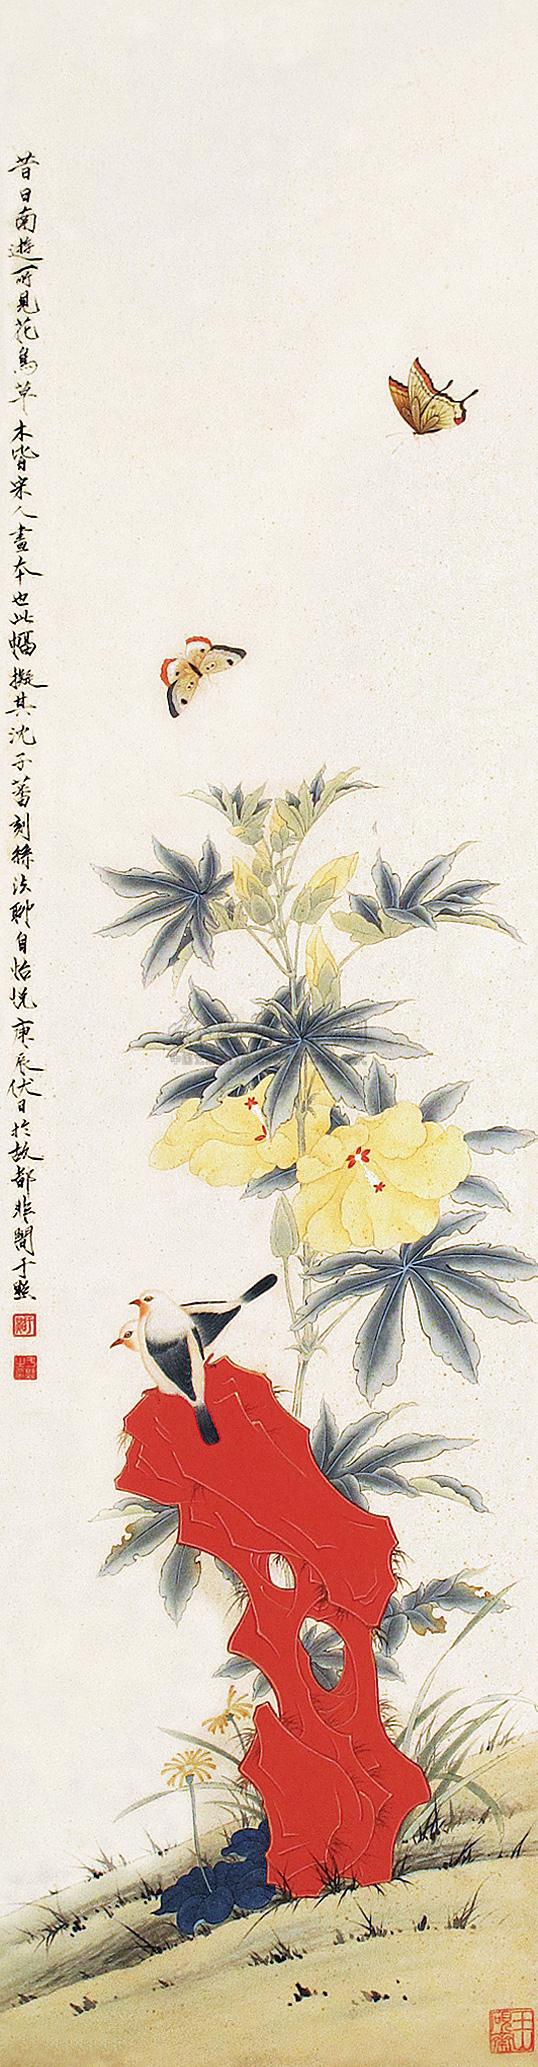 昔日南遊所見花鳥草木皆宋人畫本也此幅擬其沈子蕃刻絲法聊自怡悅庚辰伏日於故都非闇于照